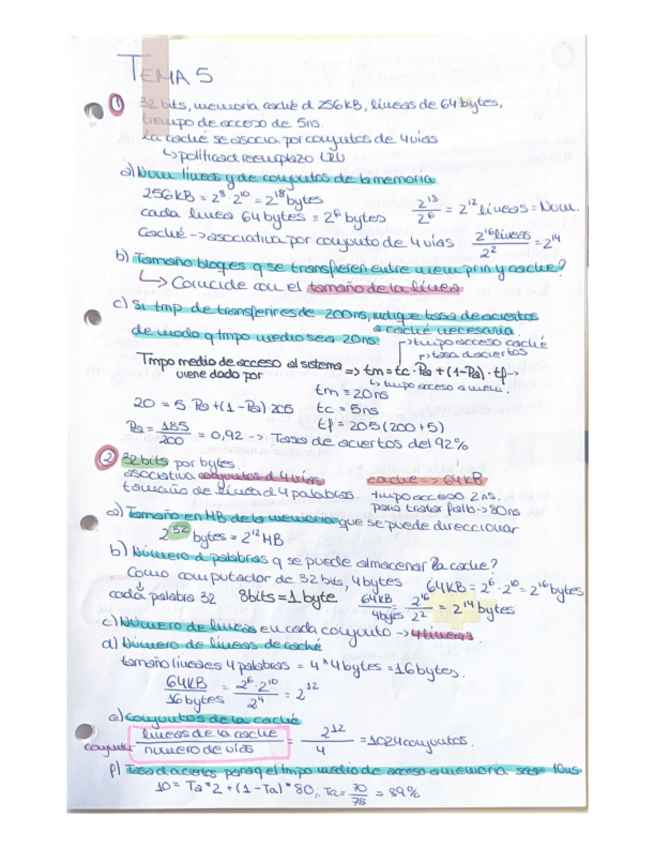 TEMA 5
① 32 bits, memoria caché d 256KB, líneas de 64 bytes,
tiempo de acceso de 5ns.
La caché se asocia por conjuntos de 4 vías
↳ política d reemplazo LRU
a) Num líneas y de conjuntos de la memoria.
256KB = 2⁸ · 2¹⁰ = 2¹⁸ bytes
cada línea 64 bytes = 2⁶ bytes 2¹⁸/2⁶ = 2¹² líneas = Num.
Caché → asociativa por conjunto de 4 vías 2¹⁶ líneas/2² = 2¹⁴
b) Tamaño bloques q se transfieren entre mem prin y caché?
↳ Coincide con el tamaño de la línea
c) Si tmp de transferir es de 200ns, indique tasa de aciertos
a caché necesaria
de modo q tmpo medio sea 20ns.
→ tmpo acceso caché
→ tasa d aciertos
Tmpo medio de acceso al sistema ⇒ tm = tc · Pa + (1-Pa) · tf →
viene dado por
↳ tmpo acceso a mem.
tm = 20ns
20 = 5 · Pa + (1 - Pa) 205 tc = 5ns
tf = 205 (200 + 5)
Pa = 185/200 = 0,92 → Tasa de aciertos del 92%
② 32 bits por bytes.
asociativa conjuntos d 4 vías caché => 64KB
tamaño de línea d 4 palabras. tmpo acceso 2ns.
para tratar fallo → 80ns
a) Tamaño en MB de la memoria que se puede direccionar
2³² bytes = 2¹² MB
b) Número d palabras q se puede almacenar la caché?
Como computador de 32 bits, 4 bytes 64KB = 2⁶ · 2¹⁰ = 2¹⁶ bytes
cada palabra 32 8bits = 1 byte 64KB/4bytes = 2¹⁶/2² = 2¹⁴ bytes
c) Número de líneas en cada conjunto → 4 líneas.
d) Número de líneas de caché
tamaño líneas 4 palabras = 4 * 4 bytes = 16 bytes.
64KB/16bytes = 2⁶·2¹⁰/2⁴ = 2¹²
e) Conjuntos de la caché
líneas de la caché/número de vías = 2¹²/4 = 1024 conjuntos.
f) Tasa d aciertos para q el tmpo medio de acceso a memoria sea 10ns
10 = Ta * 2 + (1 - Ta) * 80; Ta = 70/78 = 89%